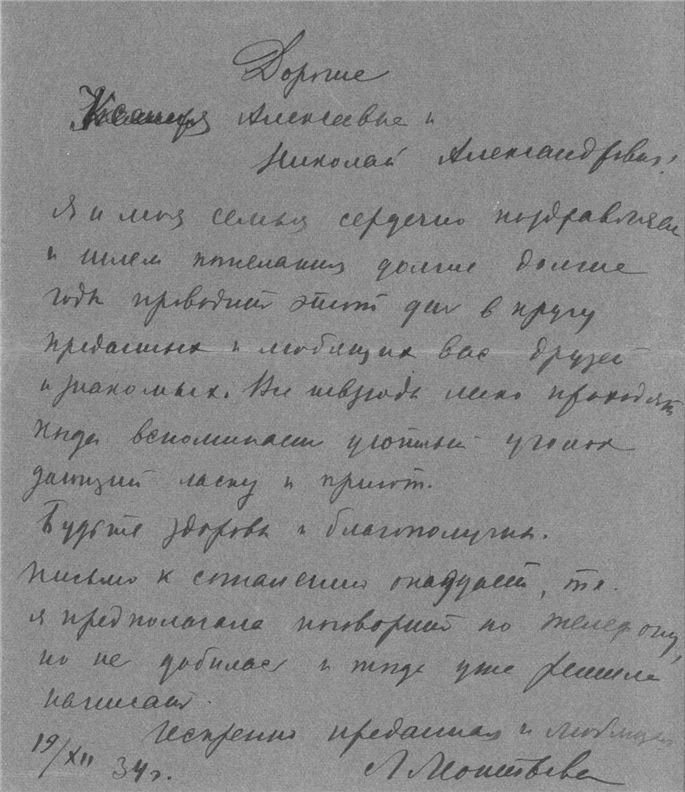 Дорогие
Ксения Алексеевна и
Николай Александрович!
Я и моя семья сердечно поздравляем
и шлем пожелания долгие долгие
годы проводить этот день в кругу
преданных и любящих вас друзей
и знакомых. Все невзгоды легко проходят
когда вспоминаешь уютный уголок
дающий ласку и приют.
Будьте здоровы и благополучны.
Письмо к сожалению опаздает, т.к.
я предполагала поговорить по телефону,
но не добилась и тогда уже решила
написать.
Искренно преданная и любящая
19/XII 34 г.